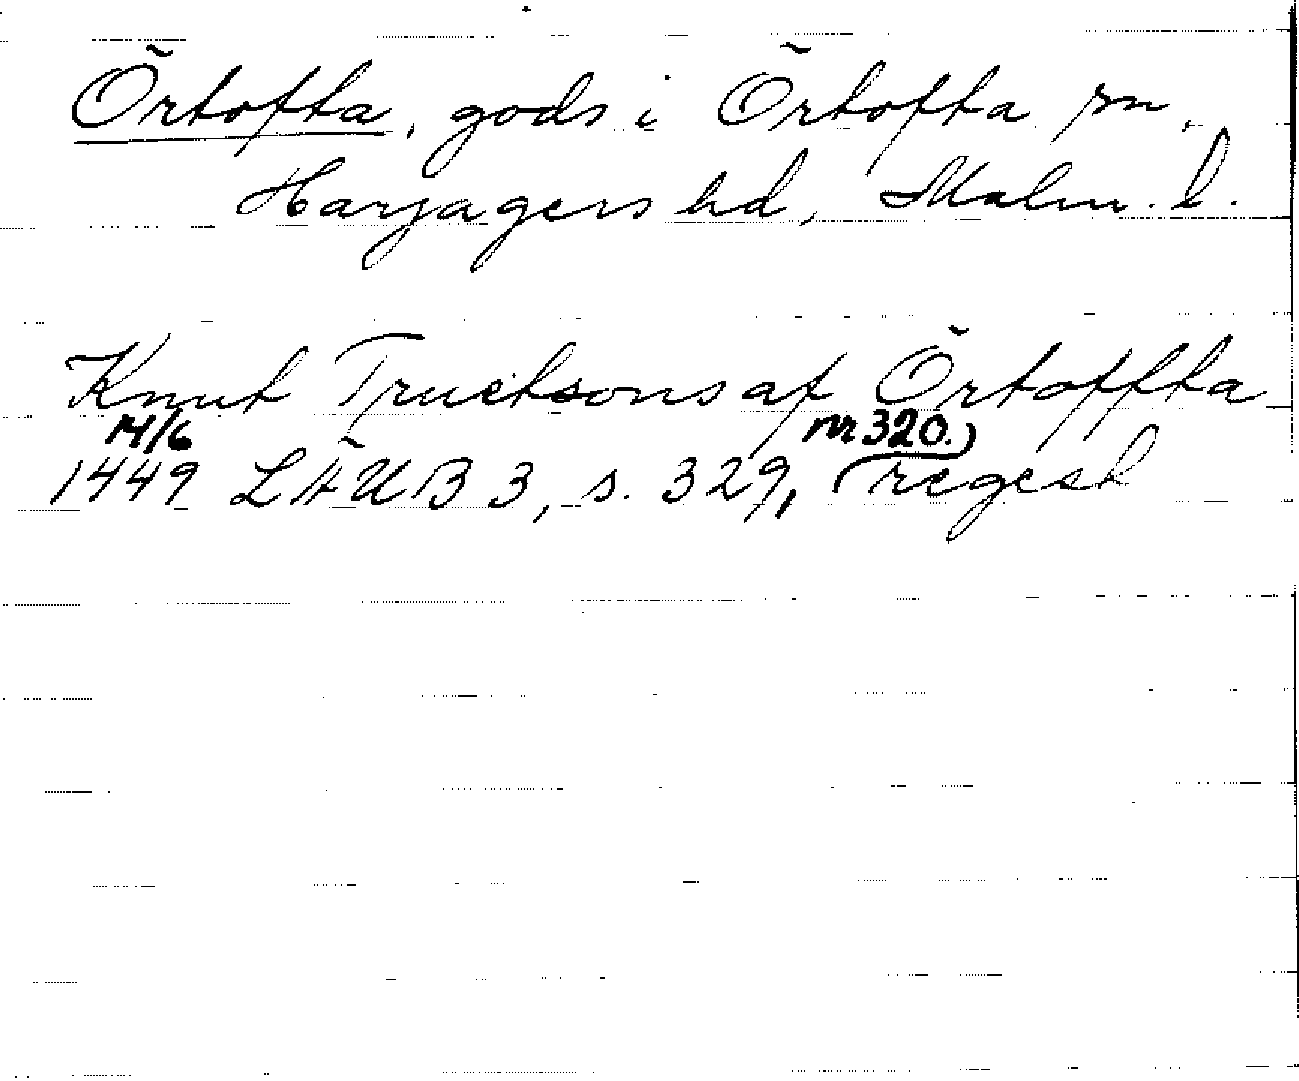 Örtofta, gods i Örtofta sn,
Harjagers hd, Malm. l.
Knut Truetsons af Örtoffta
14/6 nr 320.)
1449 LÄUB 3, s. 329, (regest